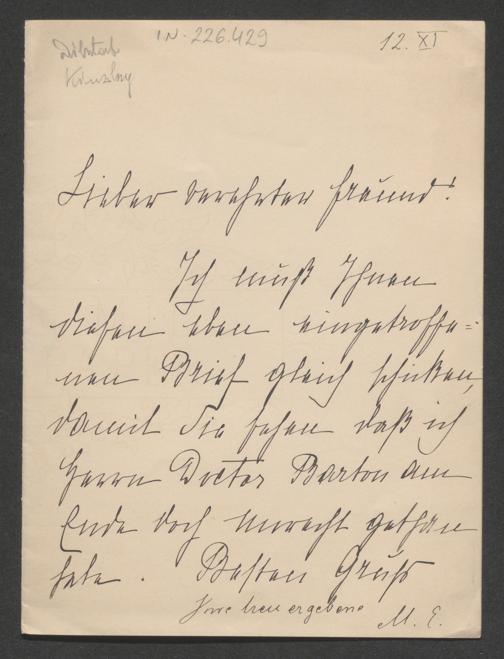 I.N. 226.429
12. XI
Lieber verehrter Freund!
Ich muß Ihnen
diesen eben eingetroffe=
nen Brief gleich schicken,
damit Sie sehen daß ich
Herrn Doctor Barton am
Ende doch Unrecht gethan
habe. Besten Gruß
Ihre treu ergebene
M. E.